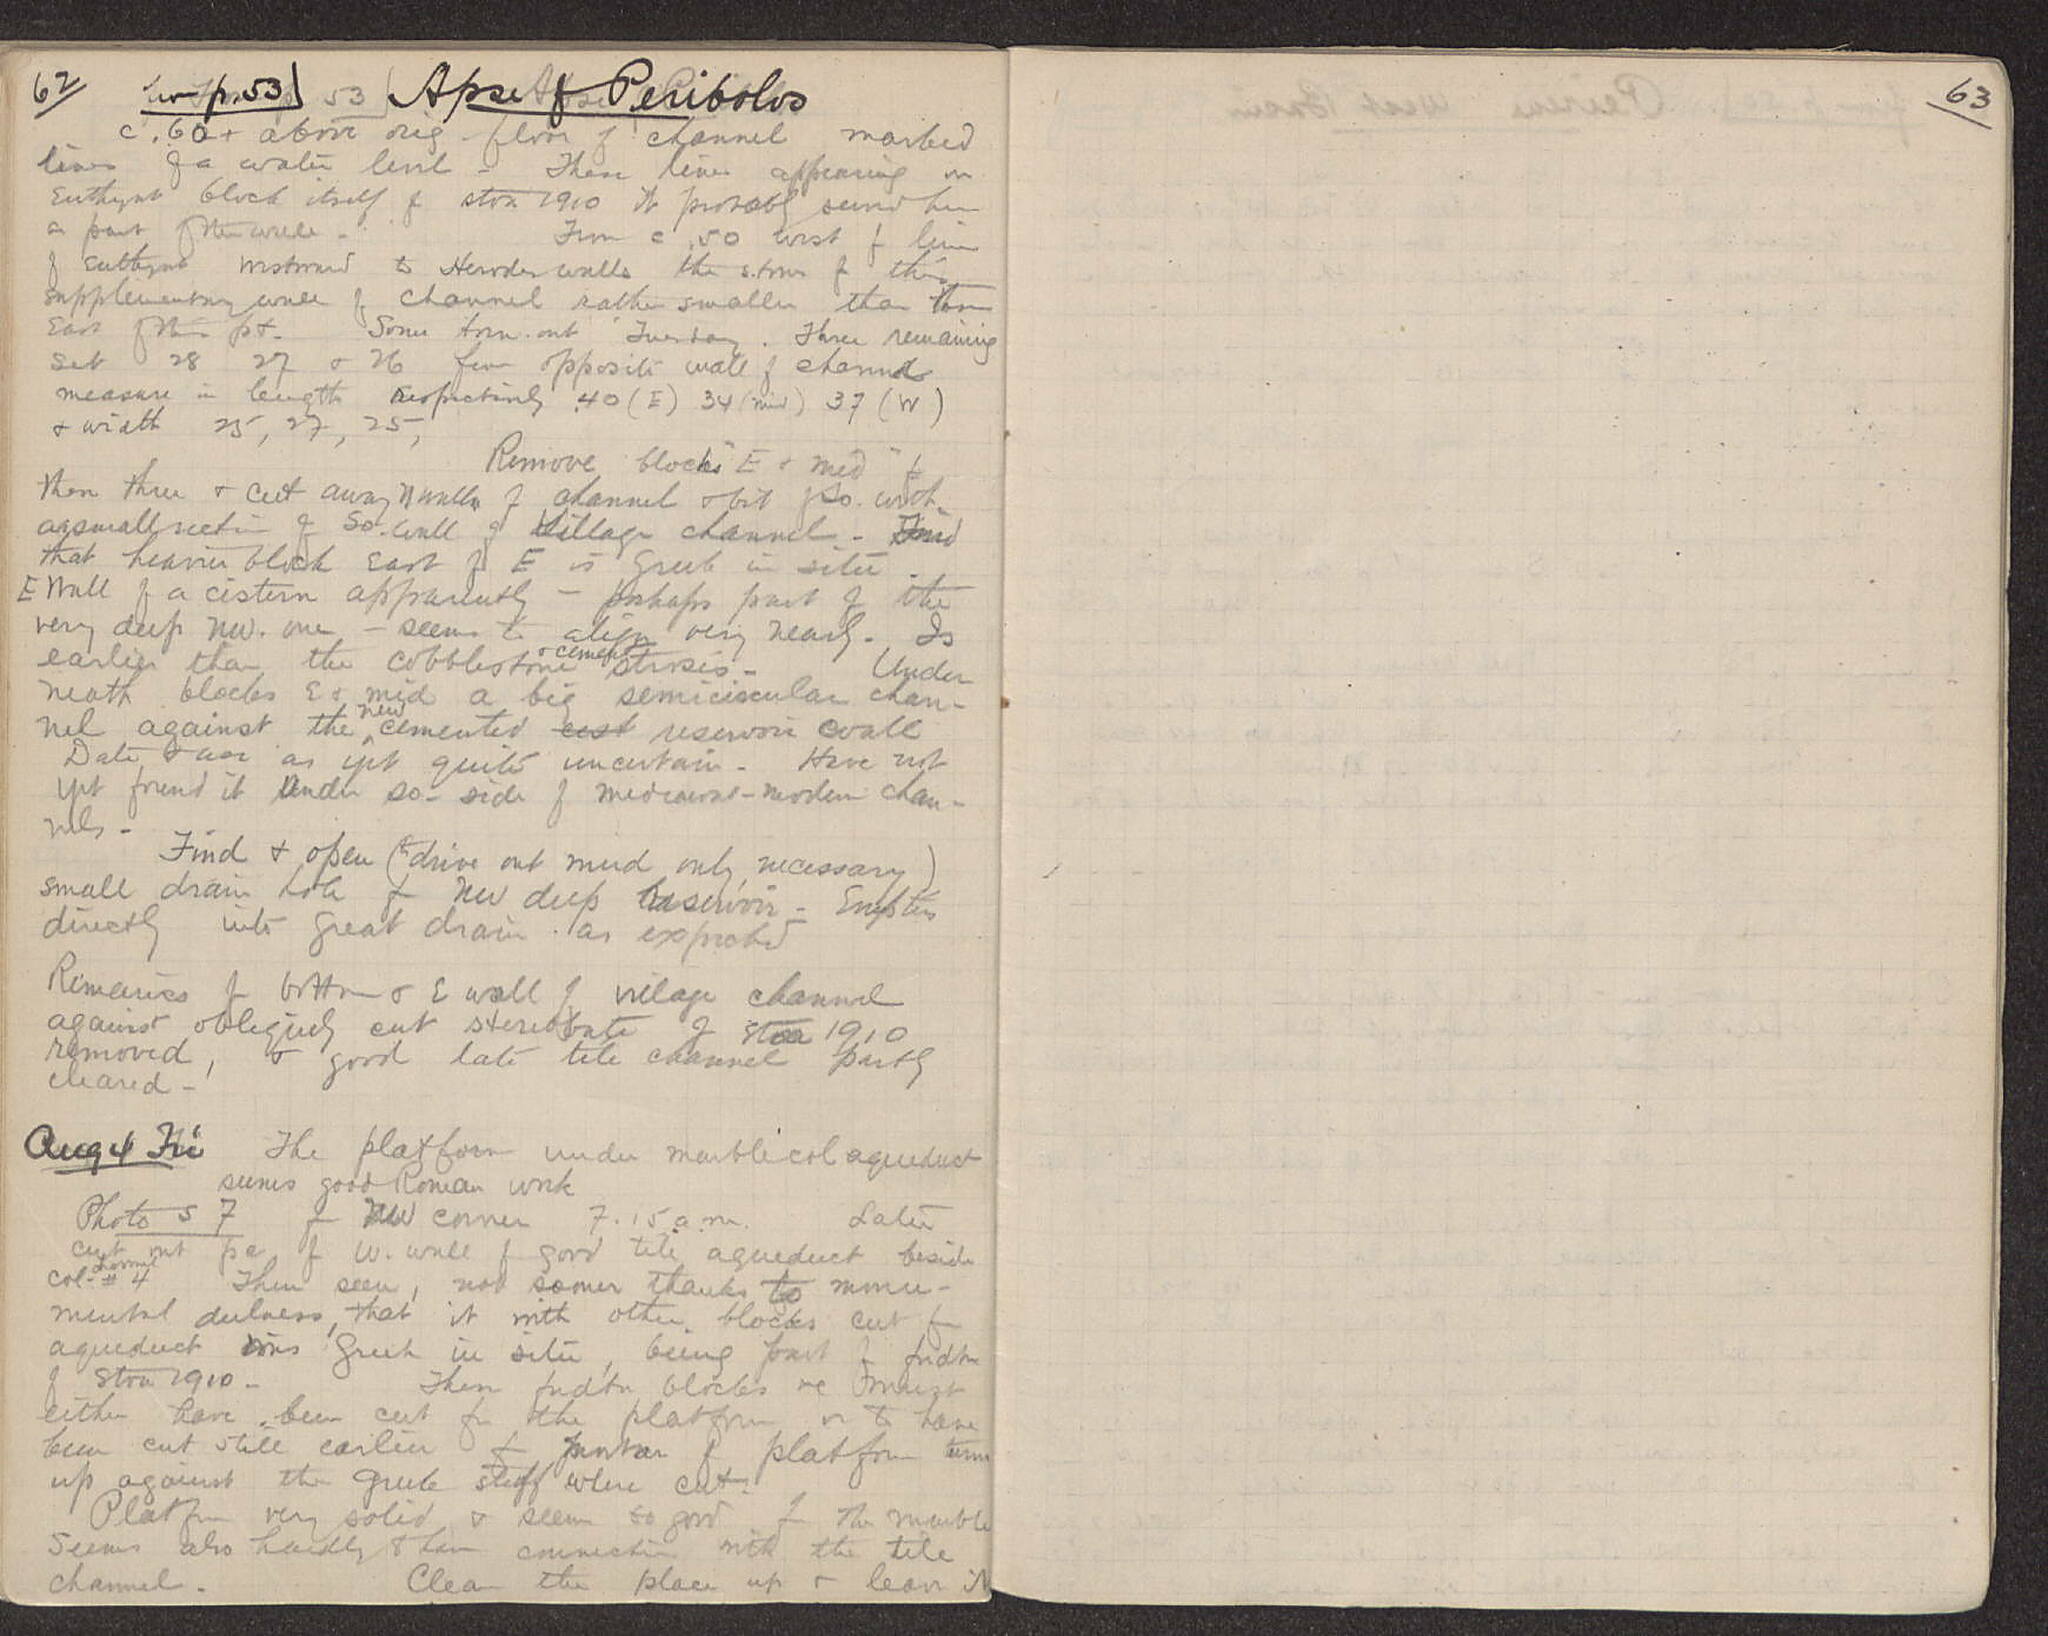 62 p. 53] Apse of Peribolos
c .60+ above orig floor of channel marked
lines of a water level - These lines appearing on
Euthynt block itself of stoa 1910 it probably served here
as part of the walls - From c .50 west of line
of Euthynt westward to Herodes walls the stones of this
supplementary wall of channel rather smaller than those
East of this pt. Some torn out Tuesday. Three remaining
set 28 27 + 26 from opposite wall of channel
measure in length respectively .40 (E) 34 (mid) 37 (W)
+ width 25, 27, 25,
Remove blocks "E + med" of
then three + cut away N walls of channel + bit of So. with
a small section of So. wall of Village channel - Find
that heavier block East of E is Greek in situ.
E Wall of a cistern apparently - perhaps part of the
very deep NW. one - seems to align very nearly. Is
earlier than the cobblestone + cement strosis - Under
neath blocks E + mid a big semicircular chan-
nel against the new cemented cist reservoir wall
Date + use as yet quite uncertain - Have not
yet found it under so- side of mediaeval-modern chan-
nels -
Find + open (to drive out mud only necessary)
small drain hole of NW deep Reservoir - Empties
directly into great drain as expected
Remains of bottom + E wall of village channel
against obliquely cut stereobate of stoa 1910
removed, + good late tile channel partly
cleared -
Aug 4 Fri The platform under marble col aqueduct
seems good Roman work
Photo 57 of NW corner 7.15 a.m. Later
cut out pc of W. wall of good tile aqueduct beside
col. # 4 Then seen, not sooner thanks to monu-
mental dulness, that it with other blocks cut for
aqueduct was Greek in situ, being part of fndtn
of Stoa 1910 - These fndtn blocks must
either have been cut for the platform or to have
been cut still earlier of platform turns
up against the Greek stuff where cut.
Platform very solid + seems so good for the marble
Seems also hardly to have connection with the tile
channel. Clean the place up + leave it
63